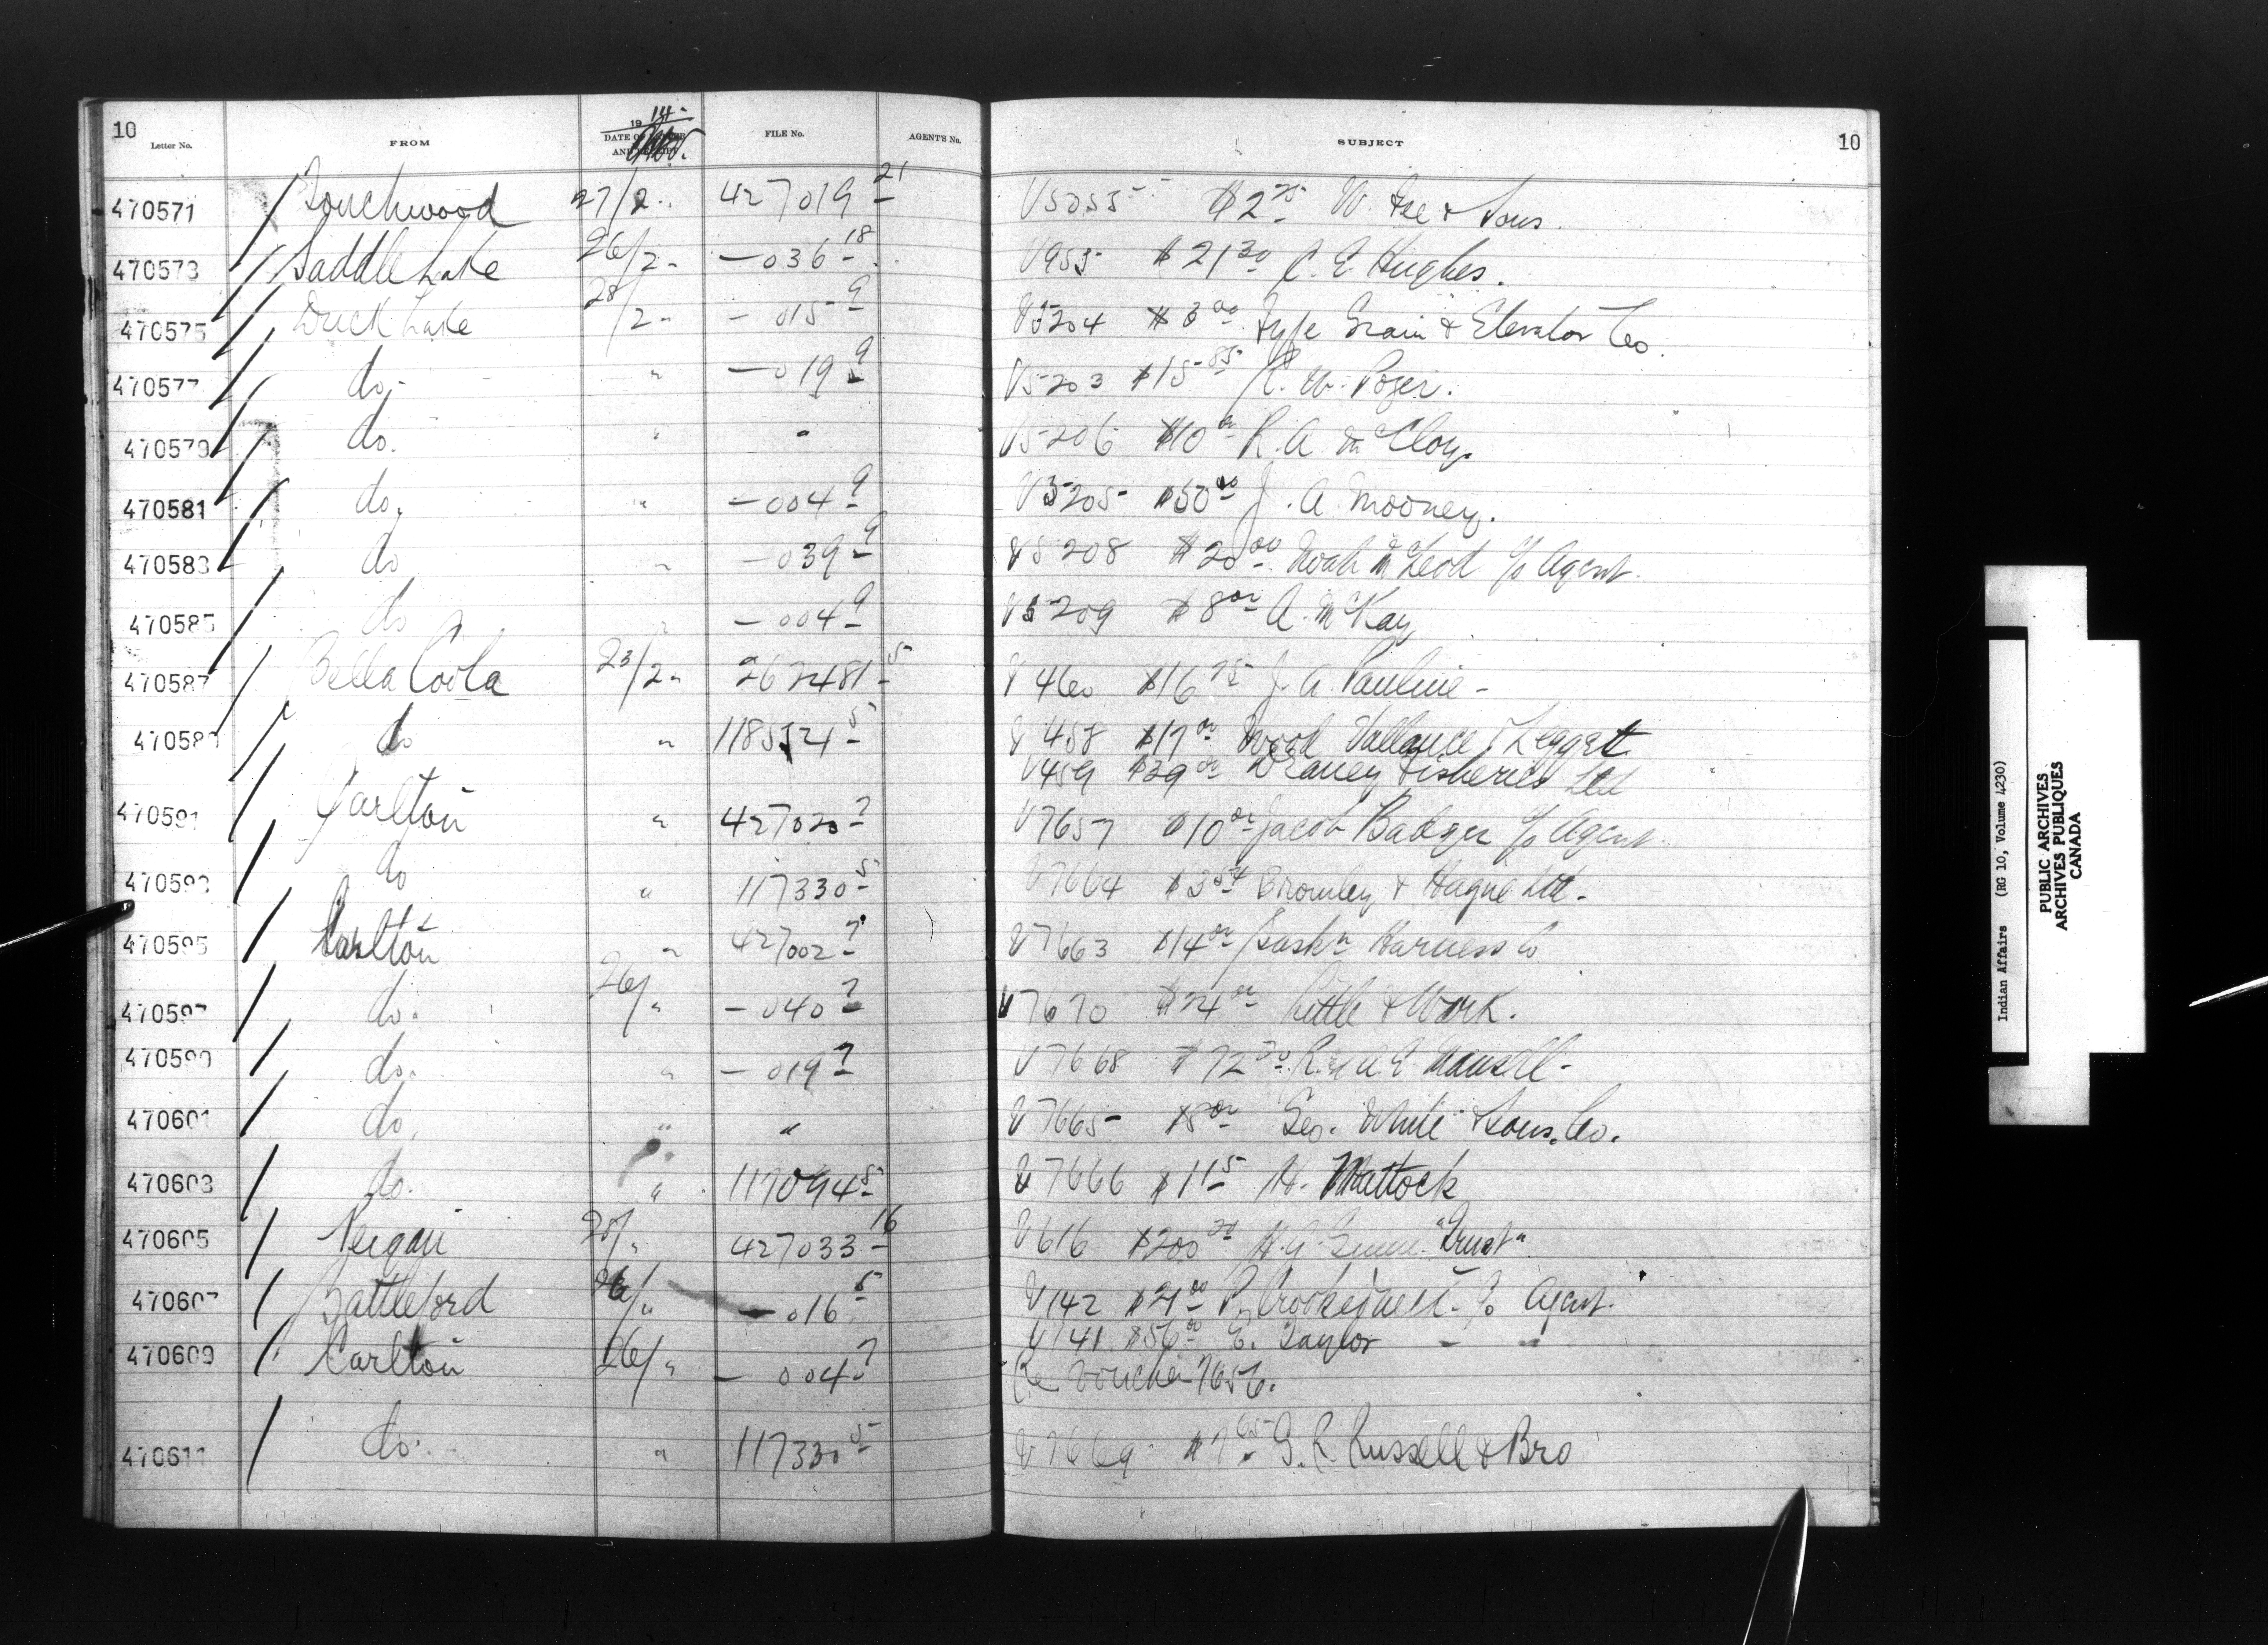 10
Letter No. FROM 1914 DATE OF LETTER AND RECEIPT FILE No. AGENT'S No. SUBJECT 10
470571 Touchwood 27/2 427019 21 V5055 $2 75 W. & Sons.
470573 Saddle Lake 26/2 - 036 18 V955 $21 30 C. E. Hughes.
470575 Duck Lake 28/2 - 015 9 V5204 $3 00 Fyfe Grain & Elevator Co.
470577 do. " - 019 9 V5203 $15 85 R. W. Poger.
470579 do. " " V5206 $10 00 R. A. McCloy.
470581 do. " - 004 9 V5205 $50 00 J. A. Mooney.
470583 do " - 039 9 V5208 $20 00 Noah McLeod c/o Agent.
470585 do " - 004 9 V5209 $8 00 A. McKay
470587 Bella Coola 23/2 262481 5 V460 $16 75 J. A. Pauline -
470589 do " 118552 5 V458 $17 00 Wood Vallance & Leggatt
V459 $39 00 Draney Fisheries Ltd
470591 Carlton " 427020 7 V7657 $10 00 Jacob Badger c/o Agent.
470593 do " 117330 5 V7664 $3 54 Bromley & Hague Ltd.
470595 Carlton " 427002 7 V7663 $14 00 Sask'n Harness Co
470597 do. 26/" - 040 7 V7670 $24 00 Little & Work.
470599 do. " - 019 7 V7668 $72 30 R. & A. E. Mansell -
470601 do. " " V7665 $8 00 Geo. White & Sons. Co.
470603 do. " 117094 5 V7666 $1 15 H. Mattock
470605 Peigan 28/" 427033 16 V616 $200 20 H. G. "Trust"
470607 Battleford 26/" - 016 5 V142 $21 00 P. c/o Agent.
V141 $56 00 E. Taylor - "
470609 Carlton 26/" - 004 7 Re Voucher 7656.
470611 do. " 117330 5 V7669 $7 65 G. R. Russell & Bro
Indian Affairs (RG 10, Volume 4230)
PUBLIC ARCHIVES
ARCHIVES PUBLIQUES
CANADA